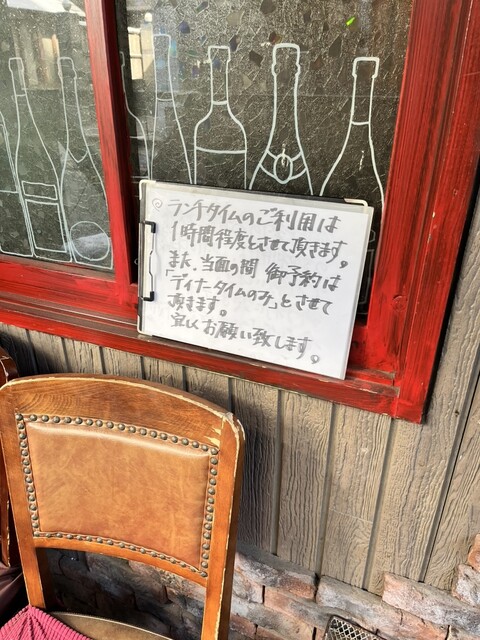 ◎ランチタイムのご利用は
1時間程度とさせて頂きます。
また、当面の間 御予約は
「ディナータイムのみ」とさせて
頂きます。
宜しくお願い致します。